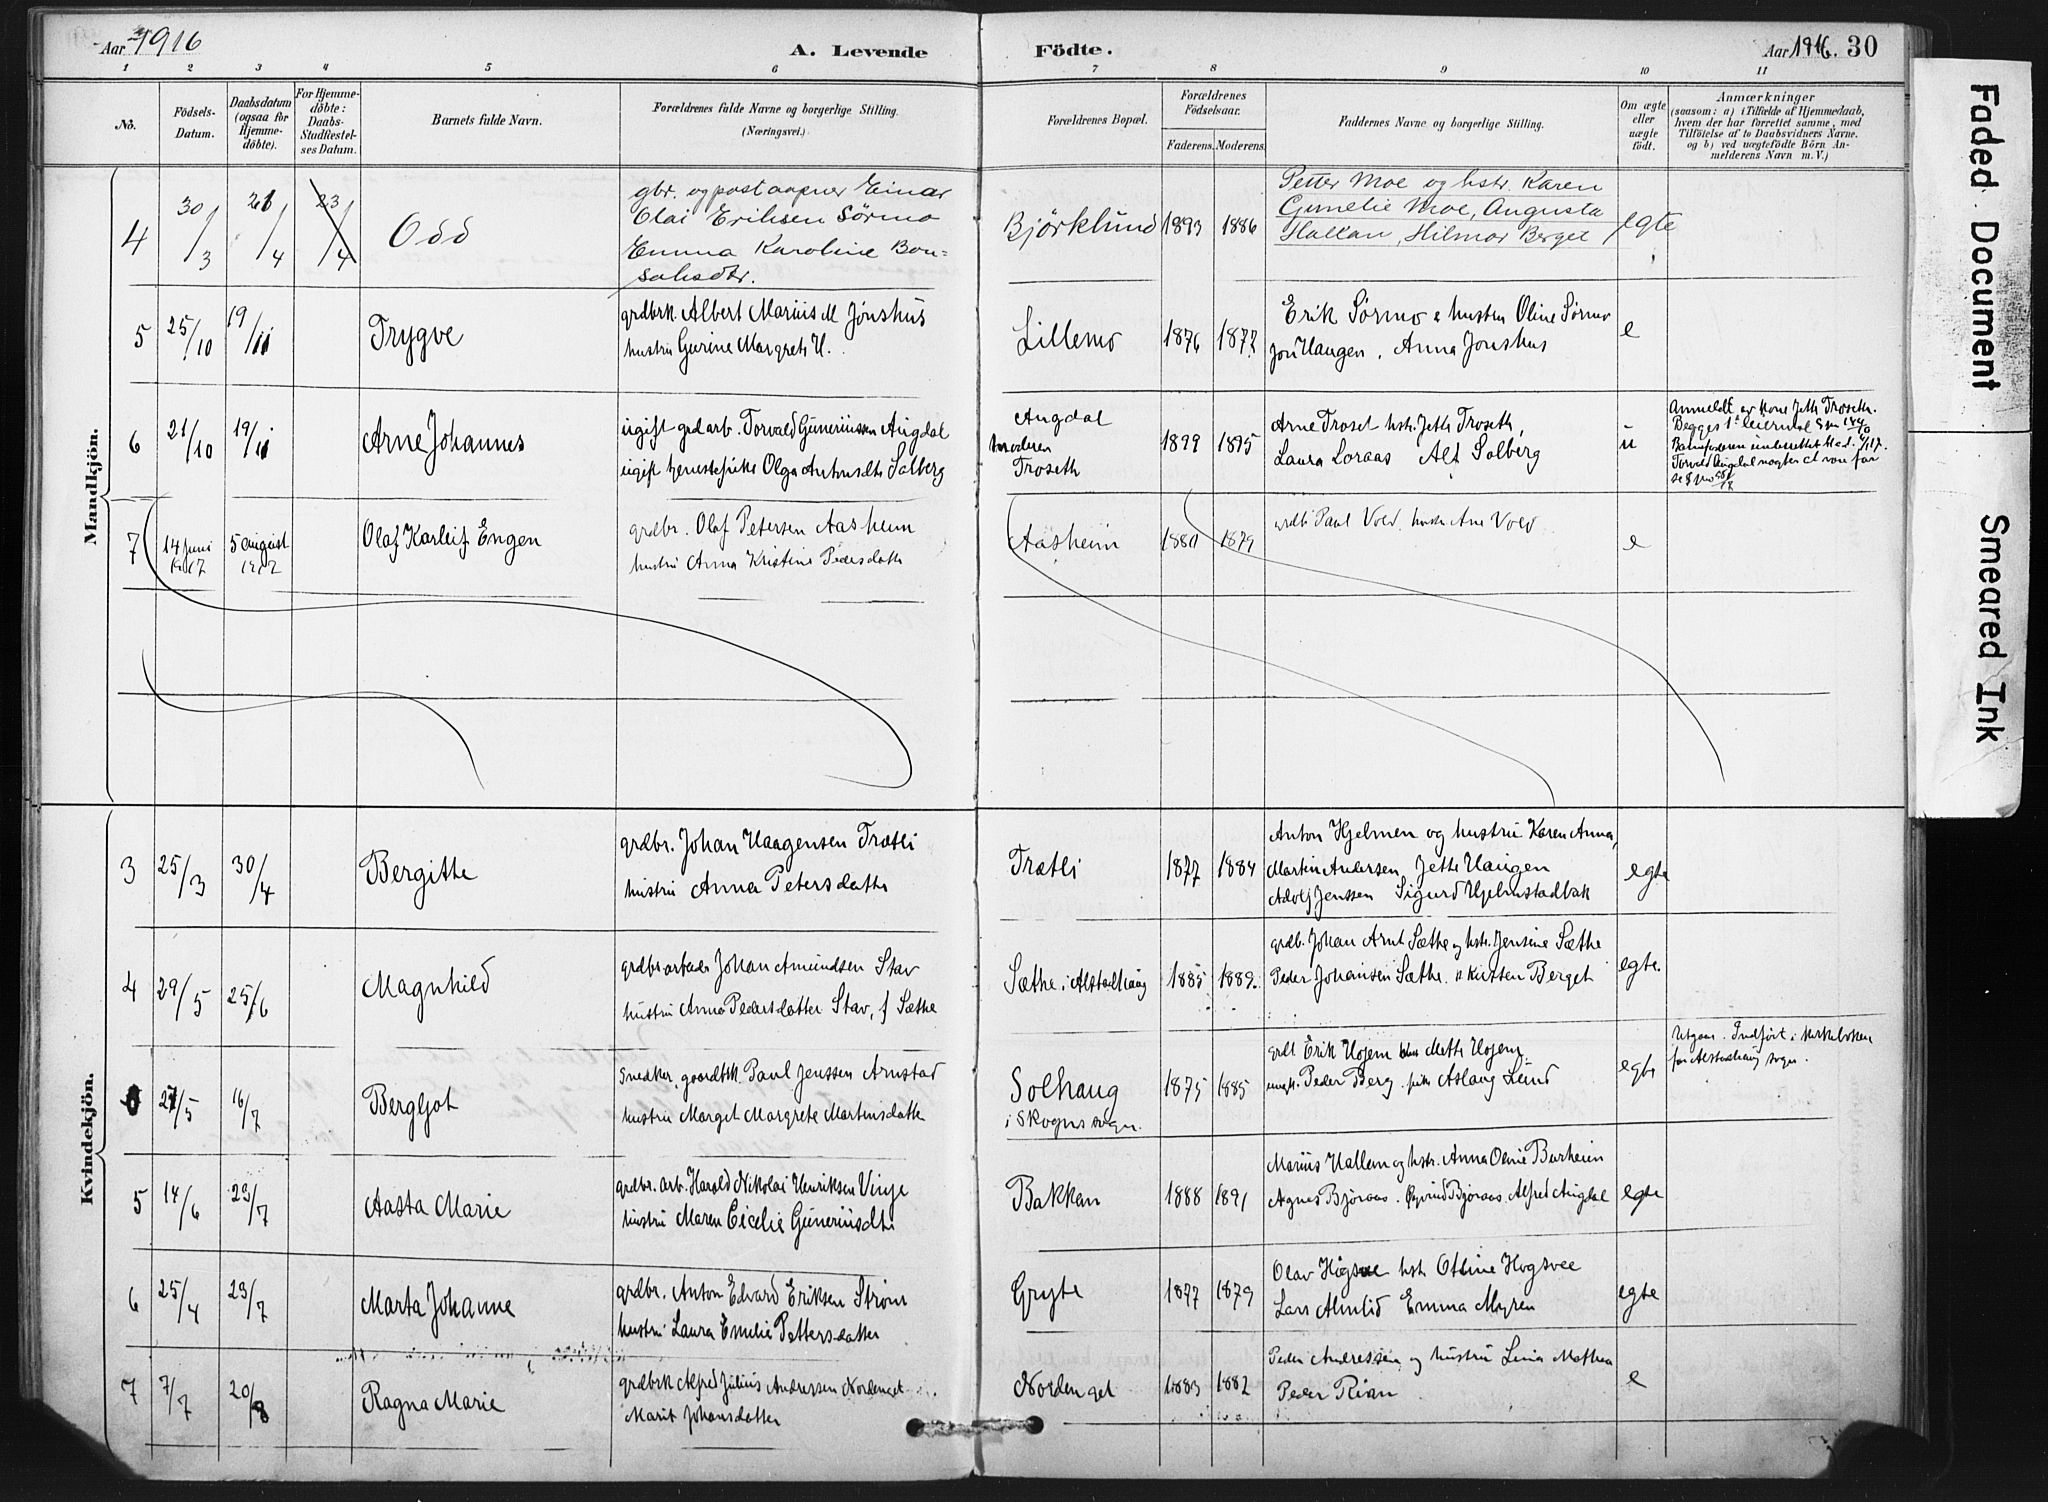 Aar 1916
A. Levende
Födte.
Aar 1916. 30
1 2 3 4 5 6 7 8 9 10 11
No.
Födsels-
Datum.
Daabsdatum
(ogsaa for
Hjemme-
döbte).
For Hjemme-
döbte:
Daabs-
Stadfæstel-
ses Datum.
Barnets fulde Navn.
Forældrenes fulde Navne og borgerlige Stilling.
(Næringsvei.)
Forældrenes Bopæl.
Forældrenes
Födselsaar.
Faderens. Moderens.
Faddernes Navne og borgerlige Stilling.
Om ægte
eller
uægte
födt.
Anmærkninger
(saasom: a) i Tilfælde af Hjemmedaab,
hvem der har forrettet samme, med
Tilföielse af to Daabsvidners Navne.
og b) ved uægtefödte Börn An-
melderens Navn m. V.)
Mandkjön.
4 30/3 21/4 23/4 Odd
gbr. og postaapner Einar
Olai Eriksen Sørmo
Emma Karoline Bon-
saksdtr.
Björklund 1893 1886
Petter Moe og hstr. Karen
Gunelie Moe, Augusta
Hallan, Hilmar Berget
egte
5 25/10 19/11 Trygve
grdbrk. Albert Marius M Jönshus
hustru Gurine Margrete H.
Lillemo 1876 1877
Erik Sørmo & hustru Oline Sørmo
Jon Haugen. Anna Jonshus
e
6 21/10 19/11 Arne Johannes
ugift grdarb. Torvald Guneriussen Augdal
ugift tjenestepike Olga Antonsdtr Salberg
Augdal
moderen
Troseth
1899 1895
Arne Troset hstr. Jette Troseth,
Laura Loraas Alf Salberg
u
Anmeldt av kone Jette Troseth.
Torvald Augdal nægter at være far
7 14 juni 1917 5 august 1917 Olaf Karleif Engen
grdbr. Olaf Petersen Aasheim
hustru Anna Kristine Pedersdatter
Aasheim 1880 1879
grdb Paul Vold. hustr Ane Vold
e
Kvindekjön.
3 25/3 30/4 Bergitte
grdbr. Johan Haagensen Trætli
hustru Anna Petersdatter
Trætli 1877 1884
Anton Hjelmen og hustru Karen Anna,
Martin Andersen, Jette Haugen
Adolf Jenssen Sigurd Hjelmstadbak
egte
4 29/5 25/6 Magnhild
grdbrarbeder Johan Amundsen Stav
hustru Anna Pedersdatter Stav, f Sæthe
Sæthe i Alstadhaug 1885 1889.
grdb. Johan Arnt Sæthe og hstr. Jensine Sæthe
Peder Johansen Sæthe. Kirsten Berget
egte.
27/5 16/7 Bergljot
Snedker, gaardbk. Paul Jenssen Arnstad
hustru Marget Margrete Martinsdatter
Solhaug
i Skogns sogn.
1875 1885
grdb. Erik Hojem hstr Mette Hojem.
ungk. Peder Berg, pike Aslaug Lund
egte
Utgaar. Indført i kirkeboken
for Alstadhaug sogn.
5 14/6 23/7 Aasta Marie
grdbr. arb. Harald Nikolai Henriksen Vinje
hustru Maren Cicelie Guneriusdtr.
Bakkan 1888 1891
Marius Hallem og hstr. Anna Oline Burheim
Agnes Björaas. Øyvind Björaas. Alfred Augdal
egte
6 25/4 23/7 Marta Johanne
grdbr. Anton Edvard Eriksen Strøm
hustru Laura Emelie Pettersdatter
Gryte 1877 1879
Olav Høgsve hstr Otiline Hogsvee
Lars Almlid Emma Myren
egte
7 7/7 20/8 Ragna Marie
grdbrk Alfred Julius Anderssen Nordenget
Marit Johansdatter
Nordenget 1883 1882
Peder Andressen og hustru Lina Mathea
Peder Rian
e
Faded Document
Smeared Ink